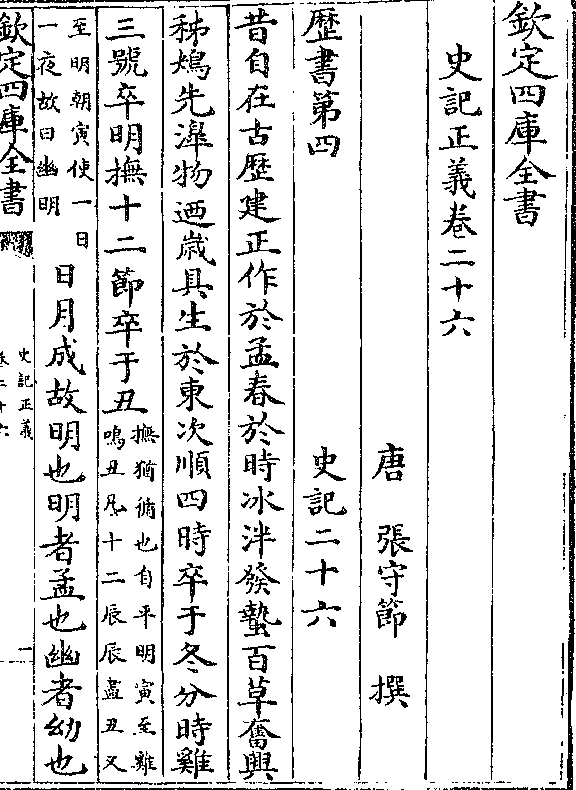 欽定四庫全書
史記正義卷二十六
唐 張守節 撰
歷書第四 史記二十六
昔自在古歷建正作於孟春於時冰泮發蟄百草奮興
秭鳺先滜物迺歲具生於東次順四時卒于冬分時雞
三號卒明撫十二節卒于丑
撫猶循也自平明寅至雞
鳴丑凡十二辰辰盡丑又
至明朝寅使一日
一夜故曰幽明
日月成故明也明者孟也幽者幼也
欽定四庫全書
史記正義
卷二十六
一